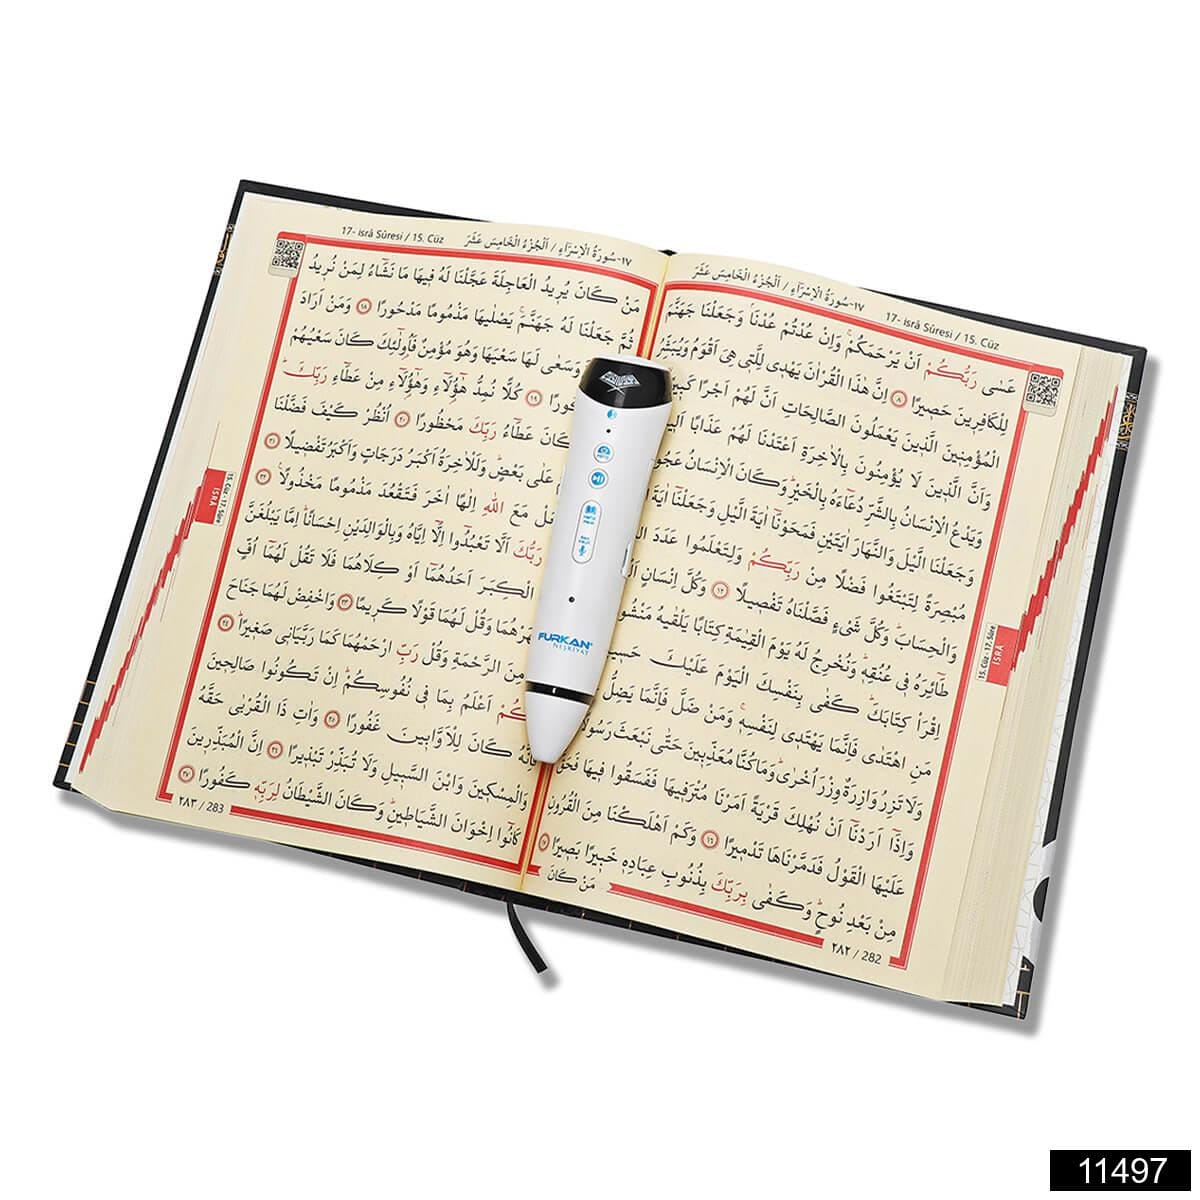 ١٧-سُورَةُ الْاِسْرَاءِ / اَلْجُزْءُ الْخَامِسَ عَشَرَ 17- isrâ Sûresi / 15. Cüz
عَسٰى رَبُّكُمْ اَنْ يَرْحَمَكُمْۚ وَاِنْ عُدْتُمْ عُدْنَاۢ وَجَعَلْنَا جَهَنَّمَ
لِلْكَافِرٖينَ حَصٖيرًا ٨ اِنَّ هٰذَا الْقُرْاٰنَ يَهْدٖى لِلَّتٖى هِىَ اَقْوَمُ وَيُبَشِّرُ
الْمُؤْمِنٖينَ الَّذٖينَ يَعْمَلُونَ الصَّالِحَاتِ اَنَّ لَهُمْ اَجْرًا
وَاَنَّ الَّذٖينَ لَا يُؤْمِنُونَ بِالْاٰخِرَةِ اَعْتَدْنَا لَهُمْ عَذَابًا
وَيَدْعُ الْاِنْسَانُ بِالشَّرِّ دُعَاءَهُ بِالْخَيْرِۜ وَكَانَ الْاِنْسَانُ
وَجَعَلْنَا الَّيْلَ وَالنَّهَارَ اٰيَتَيْنِ فَمَحَوْنَا اٰيَةَ الَّيْلِ وَجَعَلْنَا اٰيَةَ
مُبْصِرَةً لِتَبْتَغُوا فَضْلًا مِنْ رَبِّكُمْ وَلِتَعْلَمُوا عَدَدَ
وَالْحِسَابَۜ وَكُلَّ شَىْءٍ فَصَّلْنَاهُ تَفْصٖيلًا ١٢ وَكُلَّ اِنْسَانٍ
طَائِرَهُ فٖى عُنُقِهٖۜ وَنُخْرِجُ لَهُ يَوْمَ الْقِيٰمَةِ كِتَابًا يَلْقٰيهُ
اِقْرَاْ كِتَابَكَۜ كَفٰى بِنَفْسِكَ الْيَوْمَ عَلَيْكَ
مَنِ اهْتَدٰى فَاِنَّمَا يَهْتَدٖى لِنَفْسِهٖۚ وَمَنْ ضَلَّ فَاِنَّمَا يَضِلُّ
وَلَا تَزِرُ وَازِرَةٌ وِزْرَ اُخْرٰىۜ وَمَا كُنَّا مُعَذِّبٖينَ حَتّٰى نَبْعَثَ
وَاِذَا اَرَدْنَا اَنْ نُهْلِكَ قَرْيَةً اَمَرْنَا مُتْرَفٖيهَا فَفَسَقُوا فٖيهَا فَحَقَّ
عَلَيْهَا الْقَوْلُ فَدَمَّرْنَاهَا تَدْمٖيرًا ١٦ وَكَمْ اَهْلَكْنَا مِنَ الْقُرُونِ
مِنْ بَعْدِ نُوحٍۜ وَكَفٰى بِرَبِّكَ بِذُنُوبِ عِبَادِهٖ خَبٖيرًا بَصٖيرًا ١٧
مَنْ كَانَ
٢٨٢ / 282
15. Cüz - 17. Sûre
İSRÂ
17- isrâ Sûresi / 15. Cüz ١٧-سُورَةُ الْاِسْرَاءِ / اَلْجُزْءُ الْخَامِسَ عَشَرَ
مَنْ كَانَ يُرٖيدُ الْعَاجِلَةَ عَجَّلْنَا لَهُ فٖيهَا مَا نَشَاءُ لِمَنْ نُرٖيدُ
ثُمَّ جَعَلْنَا لَهُ جَهَنَّمَۚ يَصْلٰيهَا مَذْمُومًا مَدْحُورًا ١٨ وَمَنْ اَرَادَ
وَسَعٰى لَهَا سَعْيَهَا وَهُوَ مُؤْمِنٌ فَاُولٰئِكَ كَانَ سَعْيُهُمْ
١٩ كُلًّا نُمِدُّ هٰؤُلَاءِ وَهٰؤُلَاءِ مِنْ عَطَاءِ رَبِّكَۜ
كَانَ عَطَاءُ رَبِّكَ مَحْظُورًا ٢٠ اُنْظُرْ كَيْفَ فَضَّلْنَا
عَلٰى بَعْضٍۜ وَلَلْاٰخِرَةُ اَكْبَرُ دَرَجَاتٍ وَاَكْبَرُ تَفْضٖيلًا ٢١
مَعَ اللّٰهِ اِلٰهًا اٰخَرَ فَتَقْعُدَ مَذْمُومًا مَخْذُولًا ٢٢
رَبُّكَ اَلَّا تَعْبُدُوا اِلَّا اِيَّاهُ وَبِالْوَالِدَيْنِ اِحْسَانًاۜ اِمَّا يَبْلُغَنَّ
الْكِبَرَ اَحَدُهُمَا اَوْ كِلَاهُمَا فَلَا تَقُلْ لَهُمَا اُفٍّ
وَقُلْ لَهُمَا قَوْلًا كَرٖيمًا ٢٣ وَاخْفِضْ لَهُمَا جَنَاحَ
مِنَ الرَّحْمَةِ وَقُلْ رَبِّ ارْحَمْهُمَا كَمَا رَبَّيَانٖى صَغٖيرًا ٢٤
اَعْلَمُ بِمَا فٖى نُفُوسِكُمْۜ اِنْ تَكُونُوا صَالِحٖينَ
فَاِنَّهُ كَانَ لِلْاَوَّابٖينَ غَفُورًا ٢٥ وَاٰتِ ذَا الْقُرْبٰى حَقَّهُ
وَالْمِسْكٖينَ وَابْنَ السَّبٖيلِ وَلَا تُبَذِّرْ تَبْذٖيرًا ٢٦ اِنَّ الْمُبَذِّرٖينَ
كَانُوا اِخْوَانَ الشَّيَاطٖينِۜ وَكَانَ الشَّيْطَانُ لِرَبِّهٖ كَفُورًا ٢٧
٢٨٣ / 283
15. Cüz - 17. Sûre
İSRÂ
FURKAN
NEŞRİYAT
11497